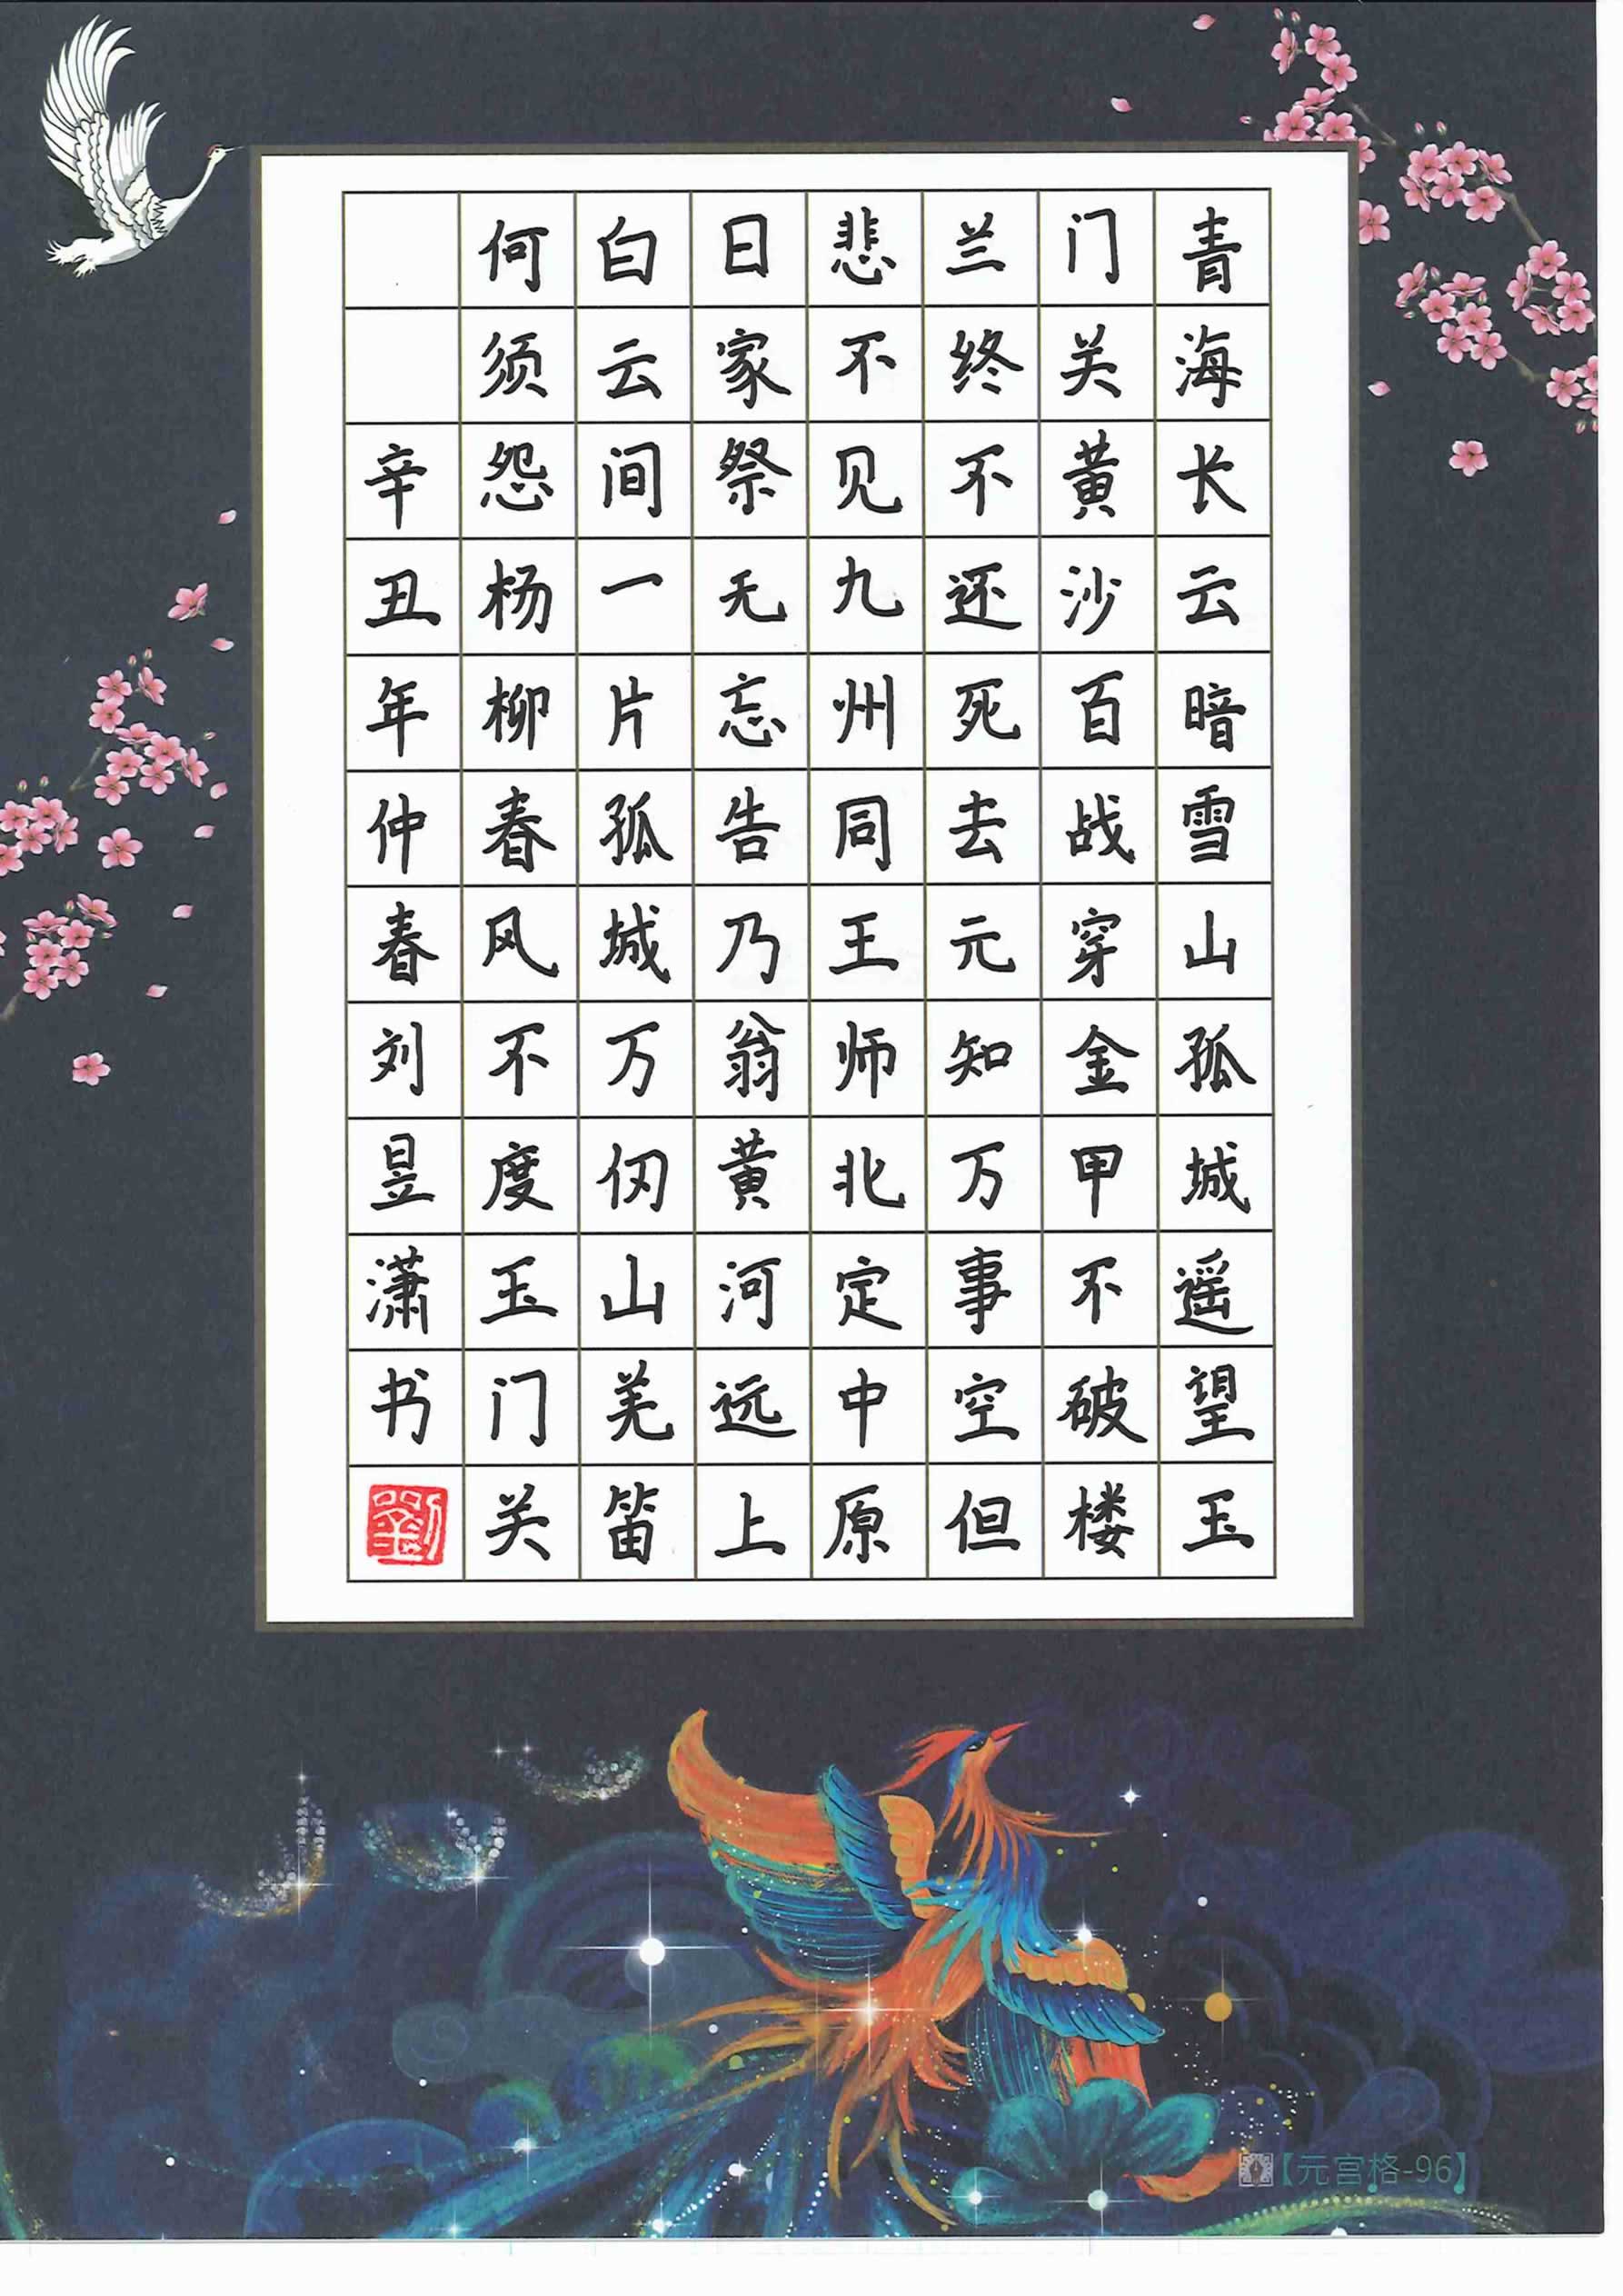 青海长云暗雪山孤城遥望玉
门关黄沙百战穿金甲不破楼
兰终不还死去元知万事空但
悲不见九州同王师北定中原
日家祭无忘告乃翁黄河远上
白云间一片孤城万仞山羌笛
何须怨杨柳春风不度玉门关
辛丑年仲春刘昱潇书
劉
【元宫格-96】